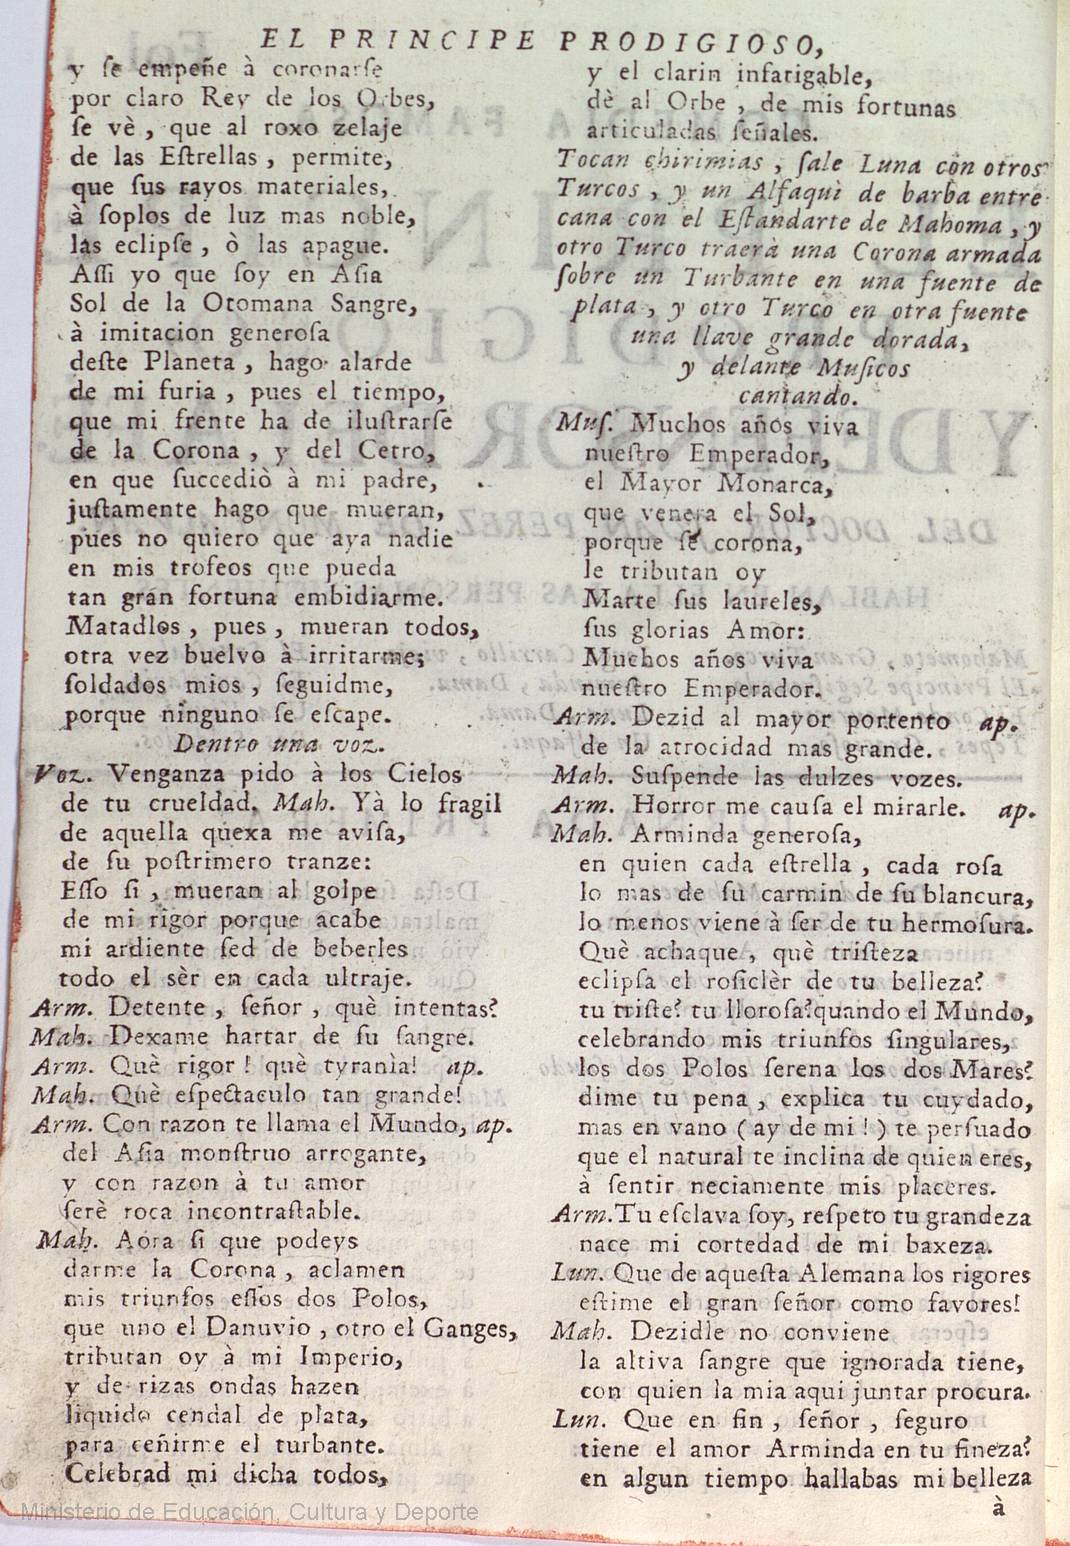 EL PRINCIPE PRODIGIOSO,
y ſe empeñe à coronarſe
por claro Rey de los Orbes,
ſe vè, que al roxo zelaje
de las Eſtrellas, permite,
que ſus rayos materiales,
à ſoplos de luz mas noble,
las eclipſe, ò las apague.
Aſſi yo que ſoy en Aſia
Sol de la Otomana Sangre,
à imitacion generoſa
deſte Planeta, hago alarde
de mi furia, pues el tiempo,
que mi frente ha de iluſtrarſe
de la Corona, y del Cetro,
en que ſuccediò à mi padre,
juſtamente hago que mueran,
pues no quiero que aya nadie
en mis trofeos que pueda
tan gran fortuna embidiarme.
Matadlos, pues, mueran todos,
otra vez buelvo à irritarme;
ſoldados mios, ſeguidme,
porque ninguno ſe eſcape.
Dentro una voz.
Voz. Venganza pido à los Cielos
de tu crueldad. Mah. Yà lo fragil
de aquella quexa me aviſa,
de ſu poſtrimero tranze:
Eſſo ſi, mueran al golpe
de mi rigor porque acabe
mi ardiente ſed de beberles
todo el sèr en cada ultraje.
Arm. Detente, ſeñor, què intentas?
Mah. Dexame hartar de ſu ſangre.
Arm. Què rigor! què tyranìa! ap.
Mah. Què eſpectaculo tan grande!
Arm. Con razon te llama el Mundo, ap.
del Aſia monſtruo arrogante,
y con razon à tu amor
ſerè roca incontraſtable.
Mah. Aora ſi que podeys
darme la Corona, aclamen
mis triunfos eſſos dos Polos,
que uno el Danuvio, otro el Ganges,
tributan oy à mi Imperio,
y de rizas ondas hazen
liquido cendal de plata,
para ceñirme el turbante.
Celebrad mi dicha todos,
y el clarin infatigable,
dè al Orbe, de mis fortunas
articuladas ſeñales.
Tocan chirimias, ſale Luna con otros
Turcos, y un Alfaqui de barba entre
cana con el Eſtandarte de Mahoma, y
otro Turco traerà una Corona armada
ſobre un Turbante en una fuente de
plata, y otro Turco en otra fuente
una llave grande dorada,
y delante Muſicos
cantando.
Muſ. Muchos años viva
nueſtro Emperador,
el Mayor Monarca,
que venera el Sol,
porque ſe corona,
le tributan oy
Marte ſus laureles,
ſus glorias Amor:
Muchos años viva
nueſtro Emperador.
Arm. Dezid al mayor portento ap.
de la atrocidad mas grande.
Mah. Suſpende las dulzes vozes.
Arm. Horror me cauſa el mirarle. ap.
Mah. Arminda generoſa,
en quien cada eſtrella, cada roſa
lo mas de ſu carmin de ſu blancura,
lo menos viene à ſer de tu hermoſura.
Què achaque, què triſteza
eclipſa el roſiclèr de tu belleza?
tu triſte? tu lloroſa? quando el Mundo,
celebrando mis triunfos ſingulares,
los dos Polos ſerena los dos Mares?
dime tu pena, explica tu cuydado,
mas en vano (ay de mi!) te perſuado
que el natural te inclina de quien eres,
à ſentir neciamente mis placeres.
Arm. Tu eſclava ſoy, reſpeto tu grandeza
nace mi cortedad de mi baxeza.
Lun. Que de aqueſta Alemana los rigores
eſtime el gran ſeñor como favores!
Mah. Dezidle no conviene
la altiva ſangre que ignorada tiene,
con quien la mia aqui juntar procura.
Lun. Que en fin, ſeñor, ſeguro
tiene el amor Arminda en tu fineza?
en algun tiempo hallabas mi belleza
à
Ministerio de Educación, Cultura y Deporte